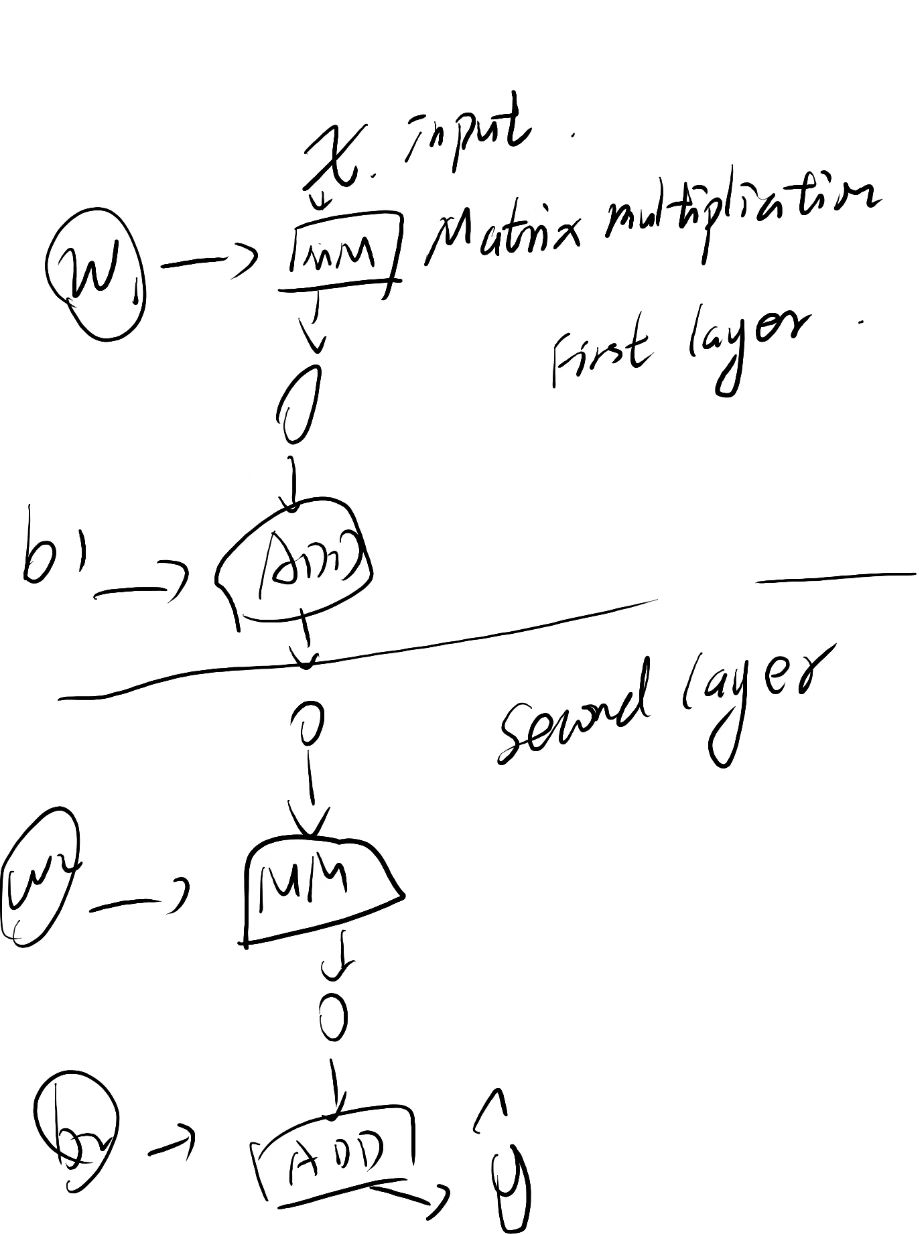 x. input.
W1 MM Matrix multipliation
First layer.
b1 ADD
Second layer
W2 MM
b2 ADD ŷ